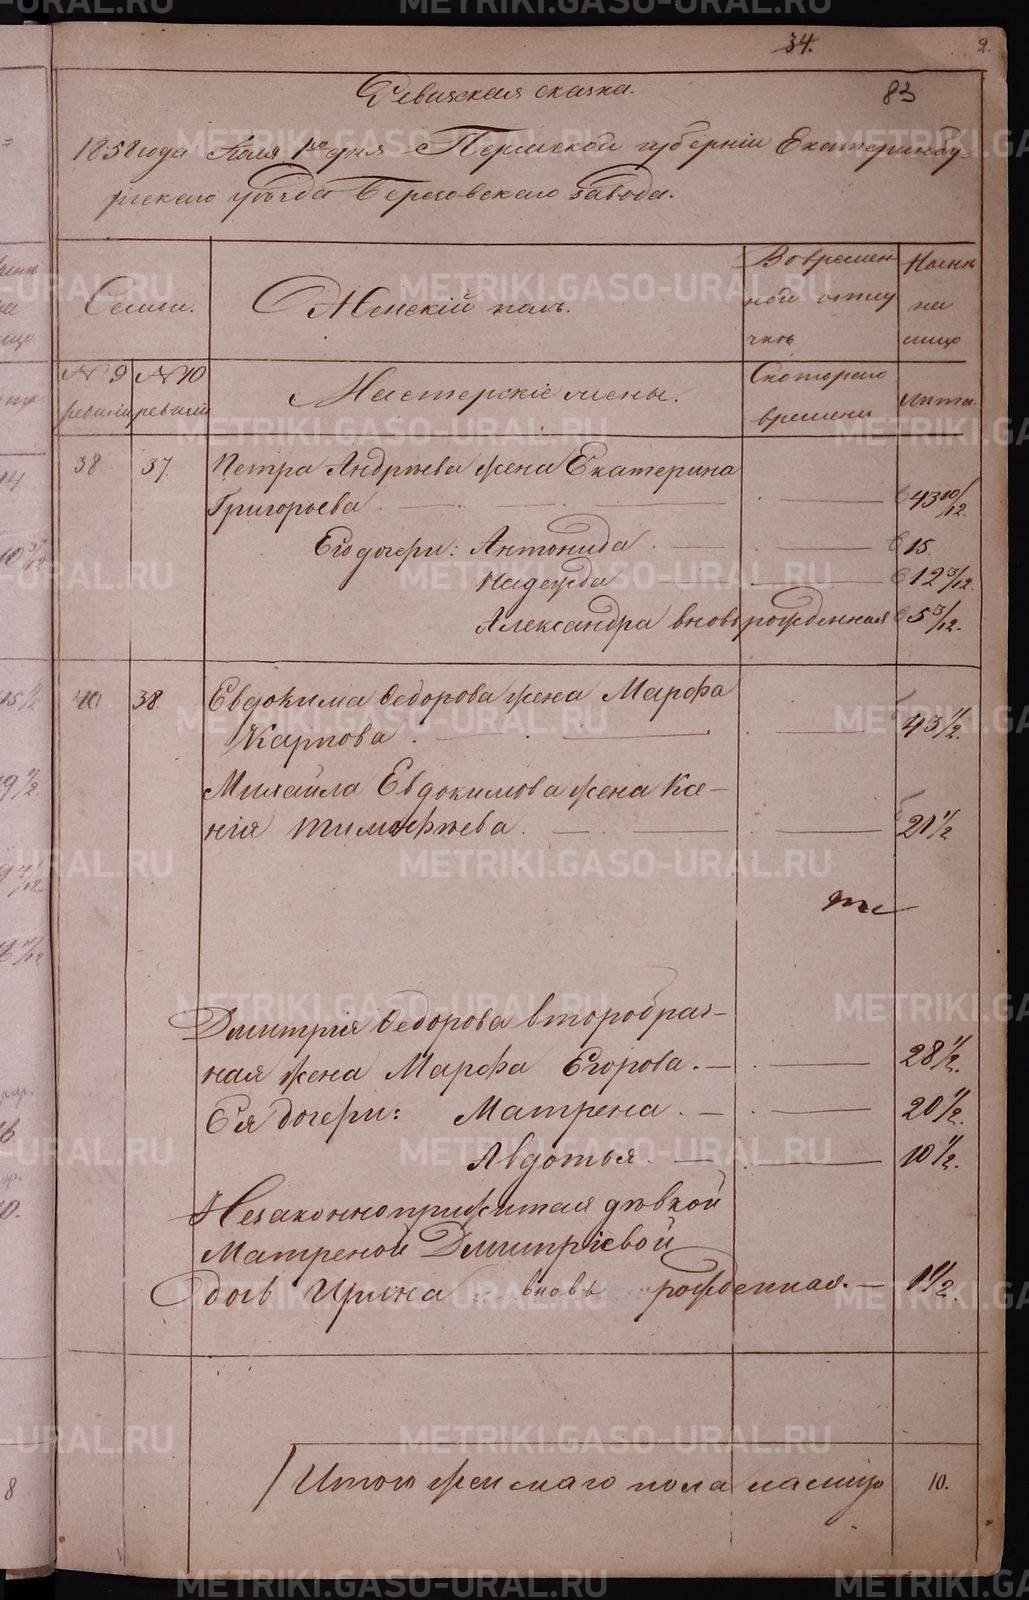 34.
2.
Ревизская сказка.
83
1858 года Июля 1го дня Пермской губерніи Екатеринбу
ргскаго уѣзда Березовскаго завода.
Семьи.
Женскій полъ.
Во времен
ной отлу
чкѣ
Нынѣ
на
лицо
№ 9
ревизіи
№ 10
ревизіи
Мастерскіе жены.
Съ котораго
времени
Лѣта.
38 37. Петра Андрѣева жена Екатерина
Григорьева. 43 10/12.
Его дочери: Антонида 15.
Надежда 12 3/12.
Александра вновь рожденная 5 3/12.
40 38 Евдокима Федорова жена Марфа
Карпова 43 1/2.
Михаила Евдокимова жена Ксе-
нія Тимофѣева. 21 1/2
Дмитрія Федорова второбрач-
ная жена Марфа Егорова. 28 1/2.
Ея дочери: Матрена. 20 1/2.
Авдотья. 10 1/2.
Незаконноприжитая дѣвкой
Матреной Дмитріевой
дочь Ирина вновь рожденная. 1 1/2.
Итого женскаго пола налицо 10.
METRIKI.GASO-URAL.RU